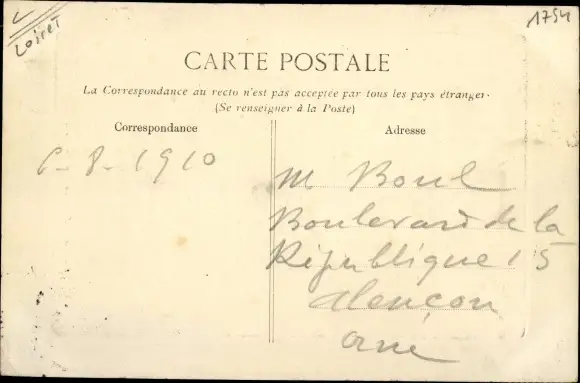 Loiret
1754
CARTE POSTALE
La Correspondance au recto n'est pas acceptée par tous les pays étranger.
(Se renseigner à la Poste)
Correspondance
Adresse
6-8-1910
M Boul
Boulevard de la
République 15
Alençon
Orne